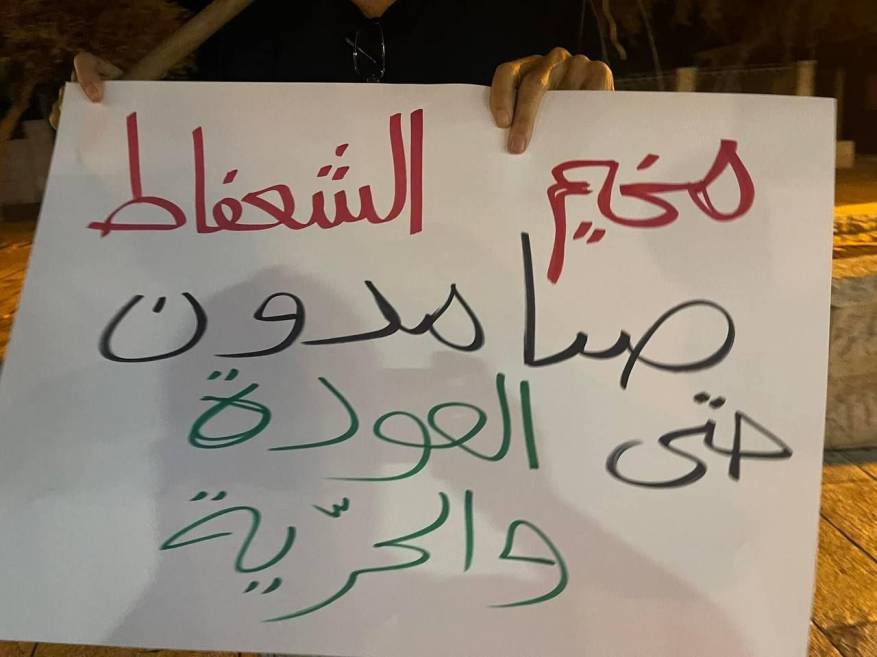 مخيم الشعفاط
صامدون
حتى العودة
والحرّية